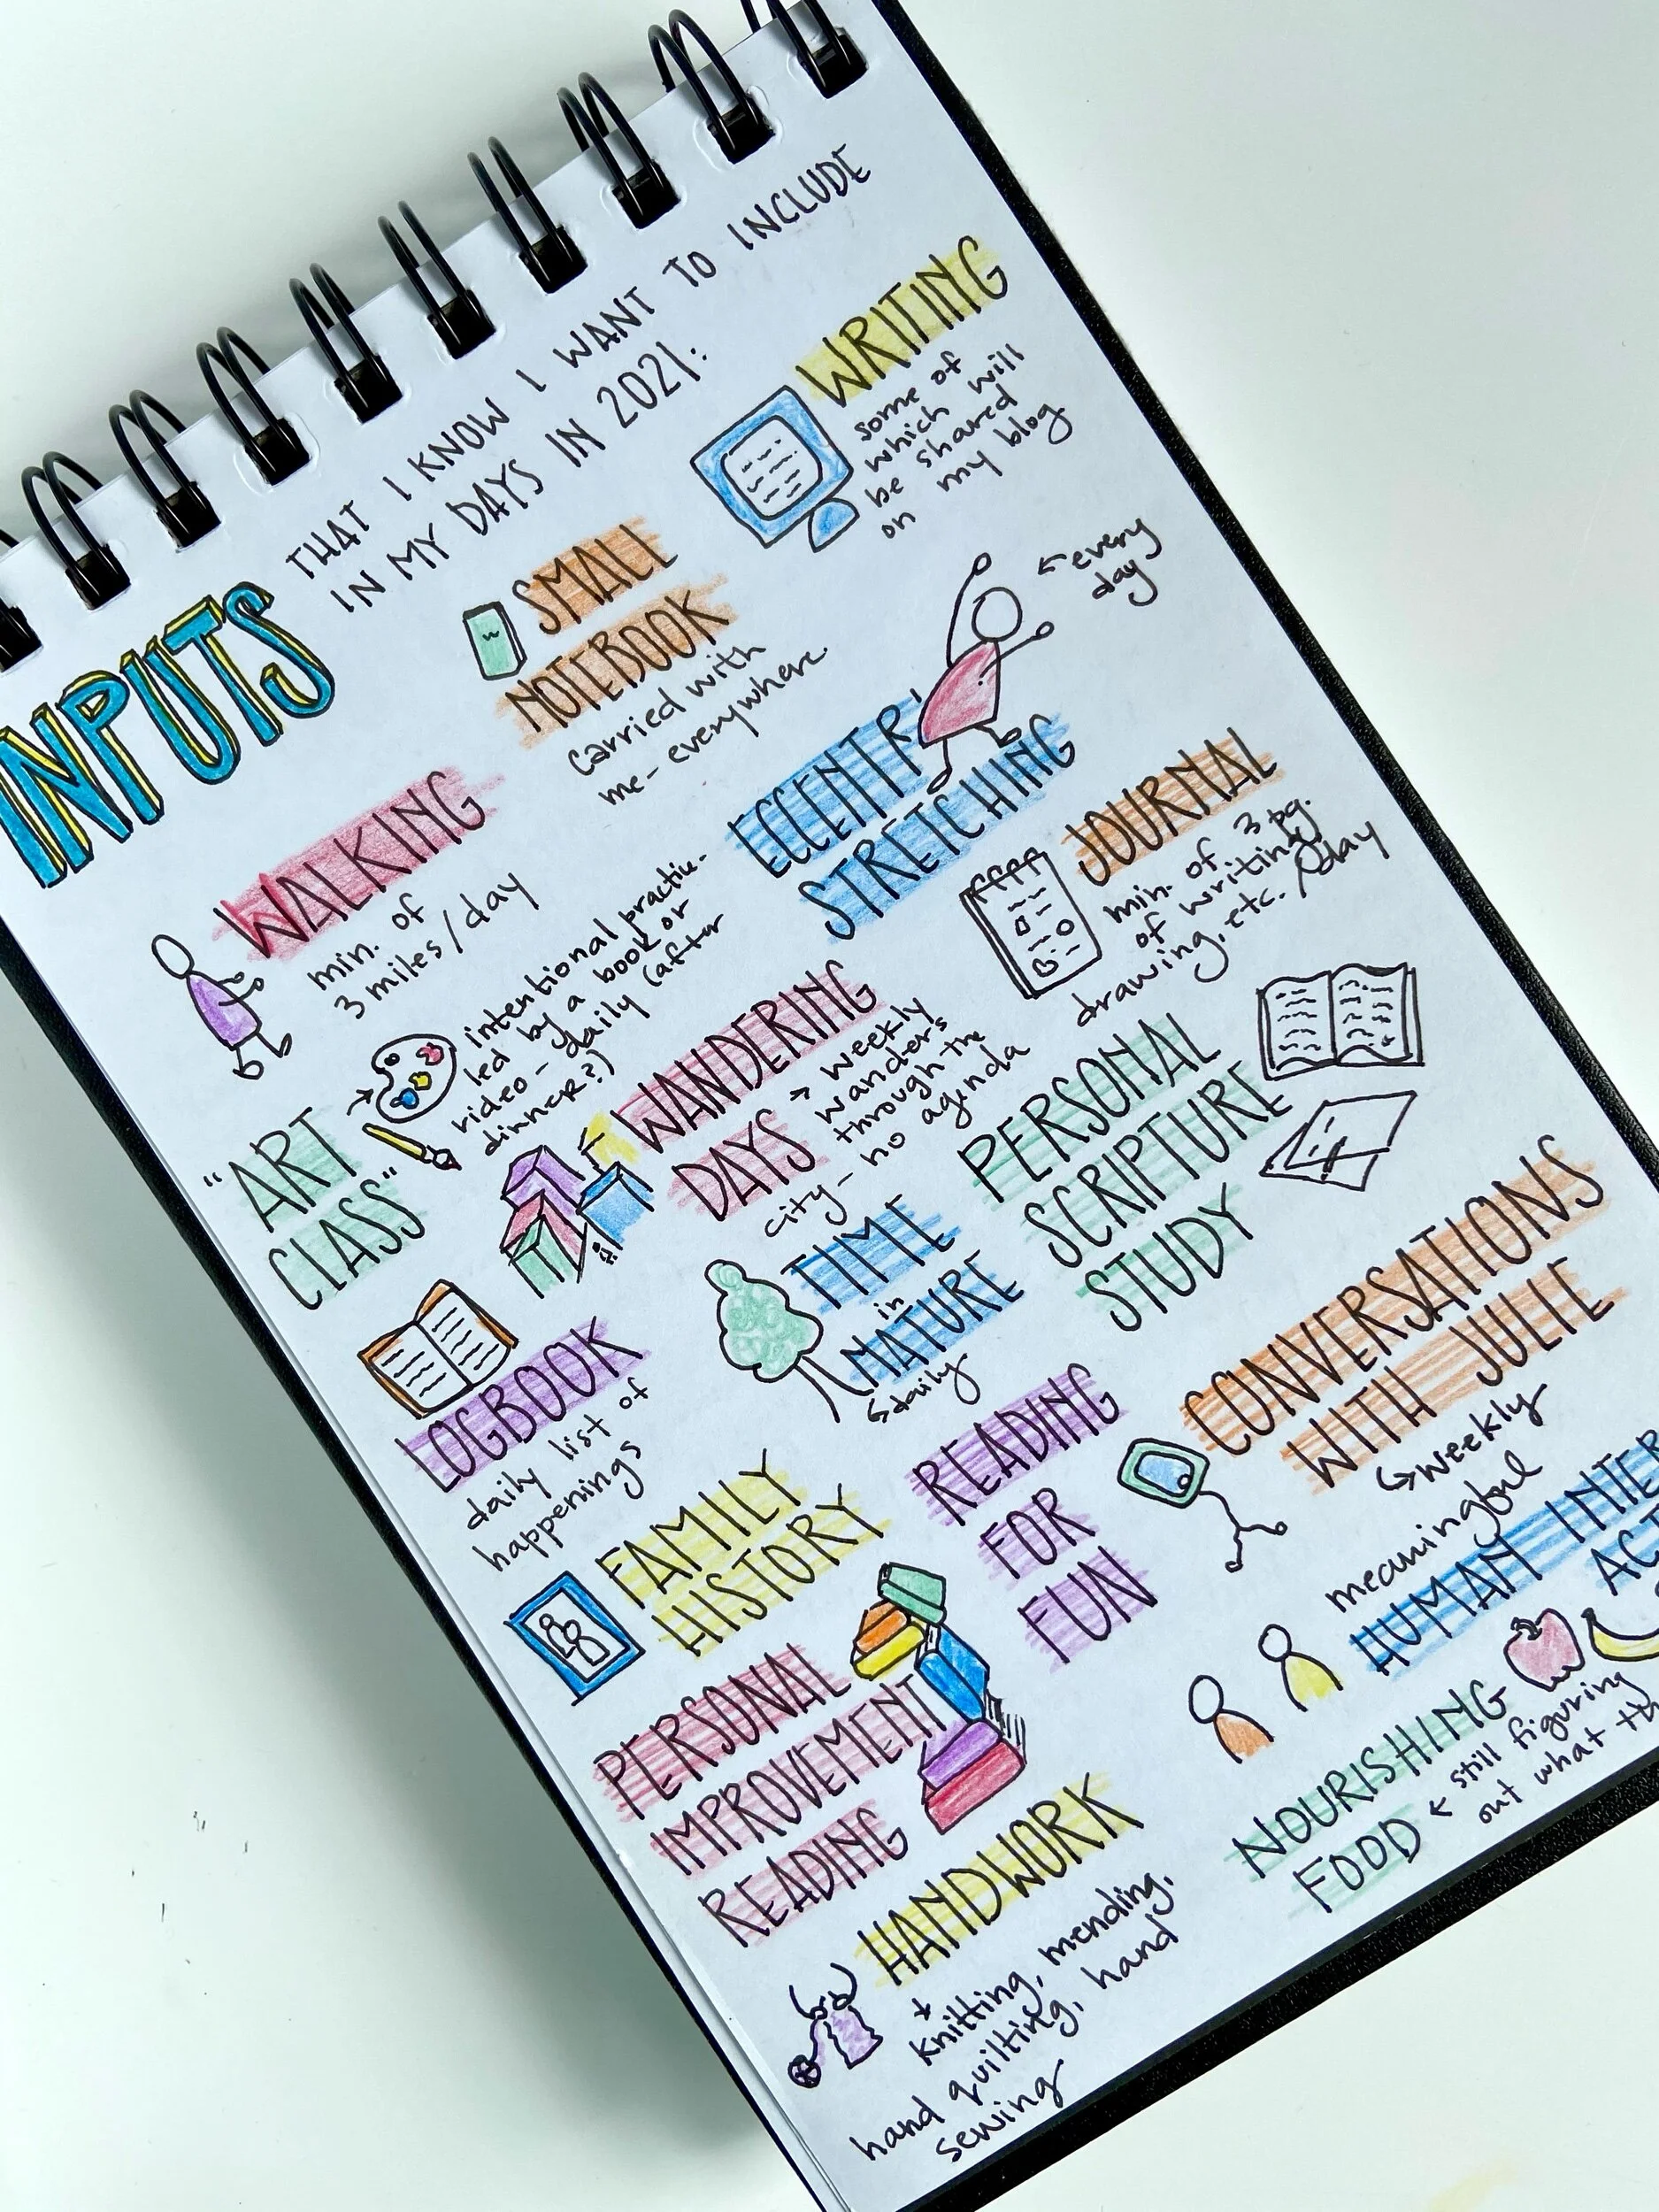 INPUTS
THAT I KNOW I WANT TO INCLUDE
IN MY DAYS IN 2021:
WRITING
some of
which will
be shared
on my blog
SMALL
NOTEBOOK
carried with
me - everywhere.
← every
day
ECCENTR'
STRETCHING
WALKING
min. of
3 miles/day
JOURNAL
min. of 3 pg.
of writing,
drawing, etc./day
"ART
CLASS"
intentional practice -
led by a book or
video - daily (after
dinner?)
WANDERING
DAYS → weekly
wanders
through the
city - no agenda
PERSONAL
SCRIPTURE
STUDY
TIME
in
NATURE
↳ daily
LOGBOOK
daily list of
happenings
CONVERSATIONS
WITH JULIE
↳ weekly
READING
FOR
FUN
FAMILY
HISTORY
meaningful
HUMAN INTER
ACT
PERSONAL
IMPROVEMENT
READING
NOURISHING
FOOD ← still figuring
out what th
HANDWORK
knitting, mending,
hand quilting, hand
sewing